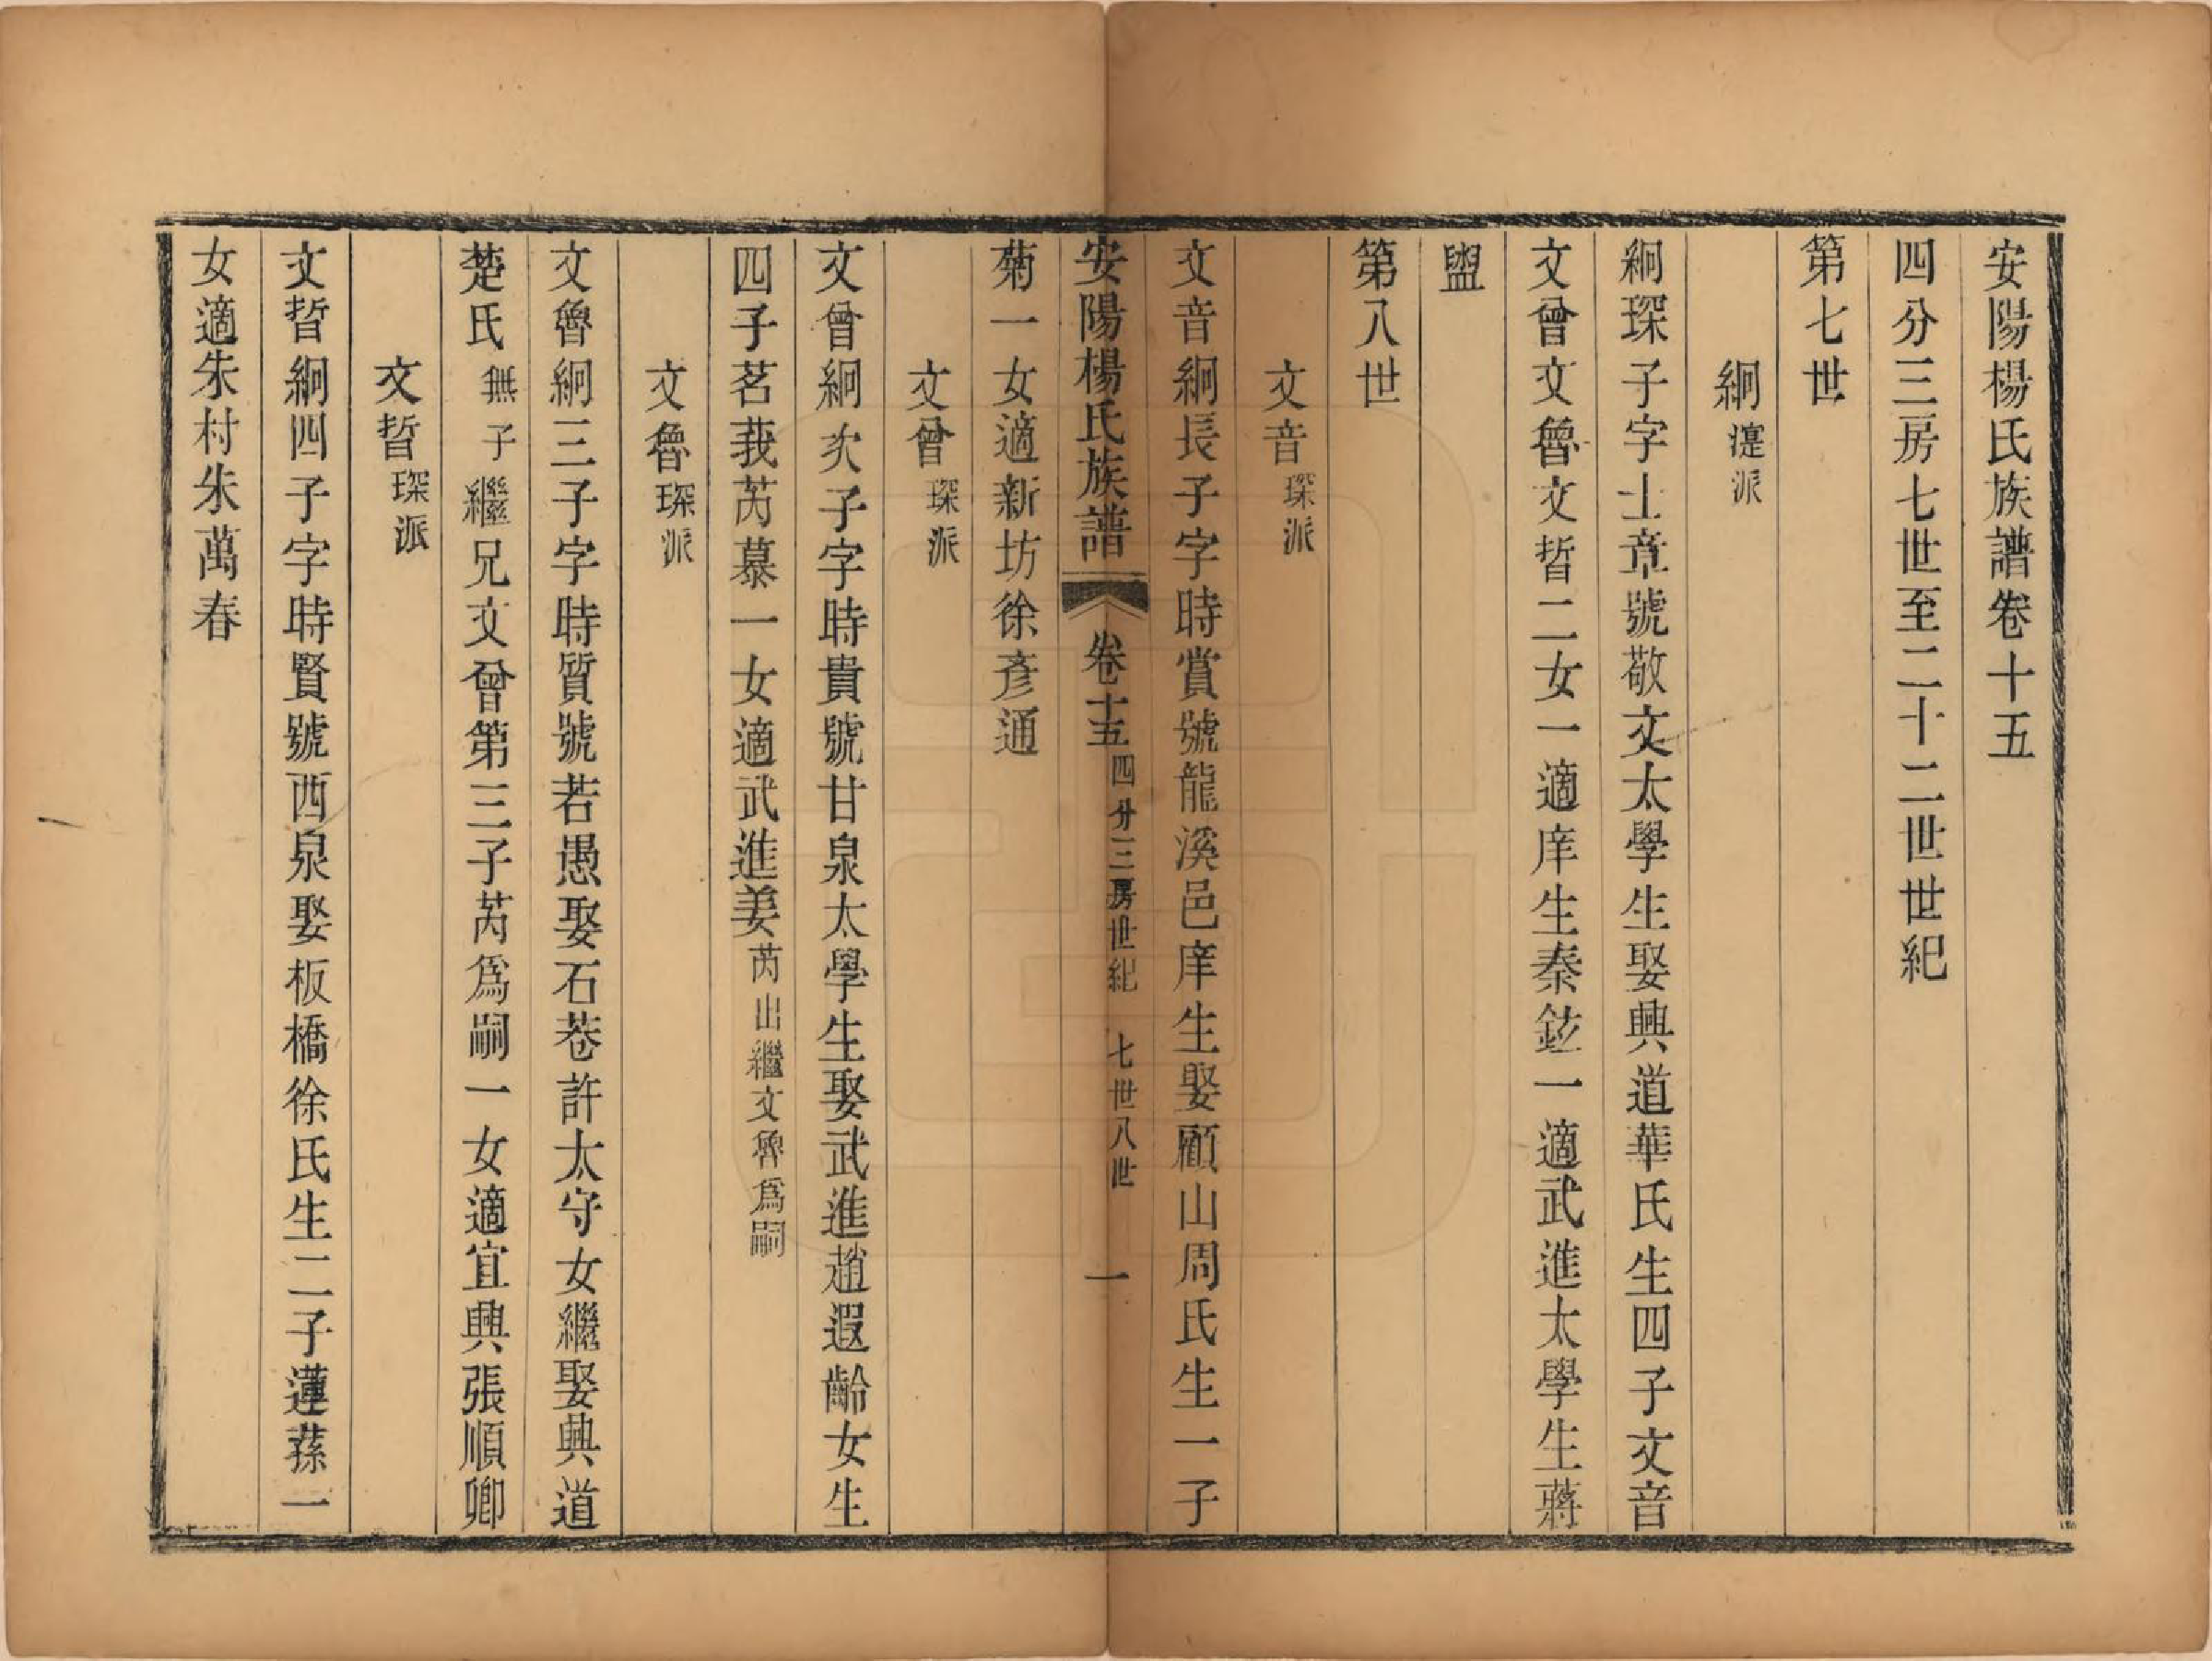 安陽楊氏族譜卷十五
四分三房七世至二十二世世紀
第七世
絅 漟派
絅琛子字士章號敬文太學生娶興道華氏生四子文音
文曾文魯文晢二女一適庠生秦鈜一適武進太學生蔣
盥
第八世
文音 琛派
文音絅長子字時賞號龍溪邑庠生娶顧山周氏生一子
安陽楊氏族譜 卷十五 四分三房世紀 七世八世 一
菊一女適新坊徐彥通
文曾 琛派
文曾絅次子字時貴號甘泉太學生娶武進趙遐齡女生
四子茗莪芮慕一女適武進姜芮出繼文魯爲嗣
文魯 琛派
文魯絅三子字時質號若愚娶石巷許太守女繼娶興道
楚氏無子繼兄文曾第三子芮爲嗣一女適宜興張順卿
文晢 琛派
文晢絅四子字時賢號西泉娶板橋徐氏生二子蓮蓀一
女適朱村朱萬春